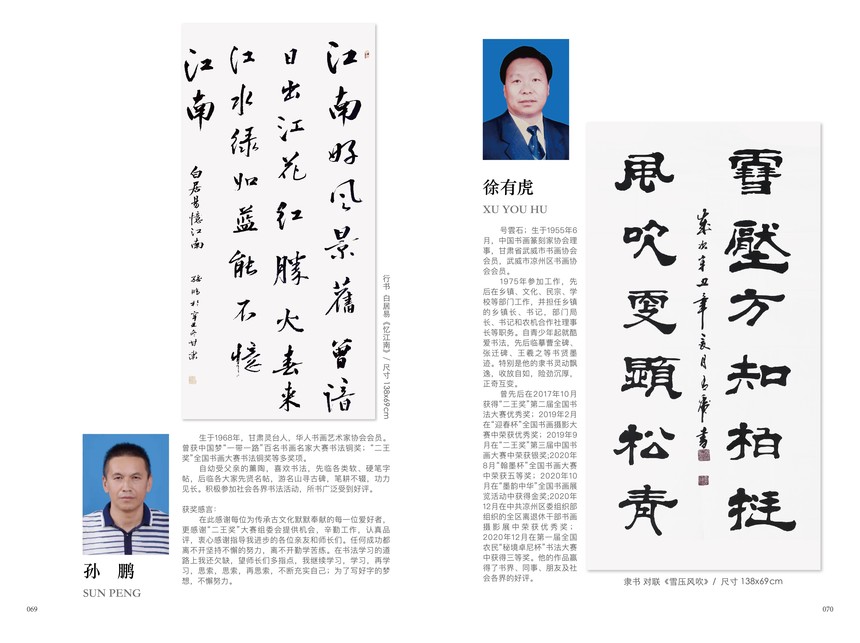 江南好风景旧曾谙
日出江花红胜火春来
江水绿如蓝能不忆
江南
白居易忆江南
行书 白居易《忆江南》/ 尺寸 138x69cm
孙 鹏
SUN PENG
生于1968年，甘肃灵台人，华人书画艺术家协会会员。
曾获中国梦“一带一路”百名书画名家大赛书法铜奖；“二王
奖”全国书画大赛书法铜奖等多奖项。
自幼受父亲的薰陶，喜欢书法，先临各类软、硬笔字
帖，后临各大家先贤名帖，游名山寻古碑，笔耕不辍，功力
见长。积极参加社会各界书法活动，所书广泛受到好评。
获奖感言：
在此感谢每位为传承古文化默默奉献的每一位爱好者，
更感谢“二王奖”大赛组委会提供机会，辛勤工作，认真品
评，衷心感谢指导我进步的各位亲友和师长们。任何成功都
离不开坚持不懈的努力，离不开勤学苦练。在书法学习的道
路上我还欠缺，望师长们多指点，我继续学习，学习，再学
习，思索，思索，再思索，不断充实自己；为了写好字的梦
想，不懈努力。
069
徐有虎
XU YOU HU
号雲石；生于1955年6
月，中国书画篆刻家协会理
事，甘肃省武威市书画协会
会员，武威市凉州区书画协
会会员。
1975年参加工作，先
后在乡镇、文化、民宗、学
校等部门工作，并担任乡镇
的乡镇长、书记、部门局
长、书记和农机合作社理事
长等职务。自青少年起就酷
爱书法，先后临摹曹全碑、
张迁碑、王羲之等书贤墨
迹。特别是他的隶书灵动飘
逸，收放自如，险劲沉厚，
正奇互变。
曾先后在2017年10月
获得“二王奖”第二届全国书
法大赛优秀奖；2019年2月
在“迎春杯”全国书画摄影大
赛中荣获优秀奖；2019年9
月在“二王奖”第三届中国书
画大赛中荣获银奖;2020年
8月“翰墨杯”全国书画大赛
中荣获五等奖；2020年10
月在“墨韵中华”全国书画展
览活动中获得金奖;2020年
12月在中共凉州区委组织部
组织的全区离退休干部书画
摄影展中荣获优秀奖；
2020年12月在第一届全国
农民“秘境卓尼杯”书法大赛
中获得三等奖。他的作品赢
得了书界、同事、朋友及社
会各界的好评。
雪壓方知柏挺
風吹更顯松青
歲次辛丑年
隶书 对联《雪压风吹》/ 尺寸 138x69cm
070